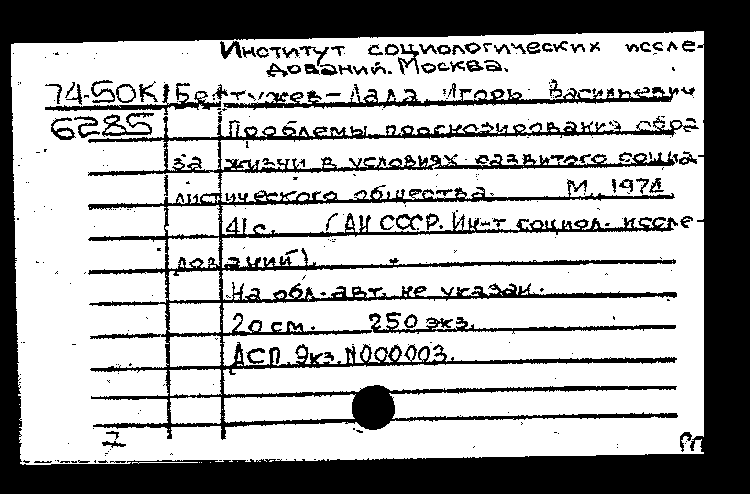 Институт социологических иссле-
дований. Москва.
74-50К Бестужев-Лада, Игорь Васильевич
6285 Проблемы прогнозирования обра-
за жизни в условиях развитого социа-
листического общества. М., 1974.
41 с. (АН СССР. Ин-т социол. иссле-
дований).
На обл. авт. не указан.
20 см. 250 экз.
ДСП. Экз. N000003.
7